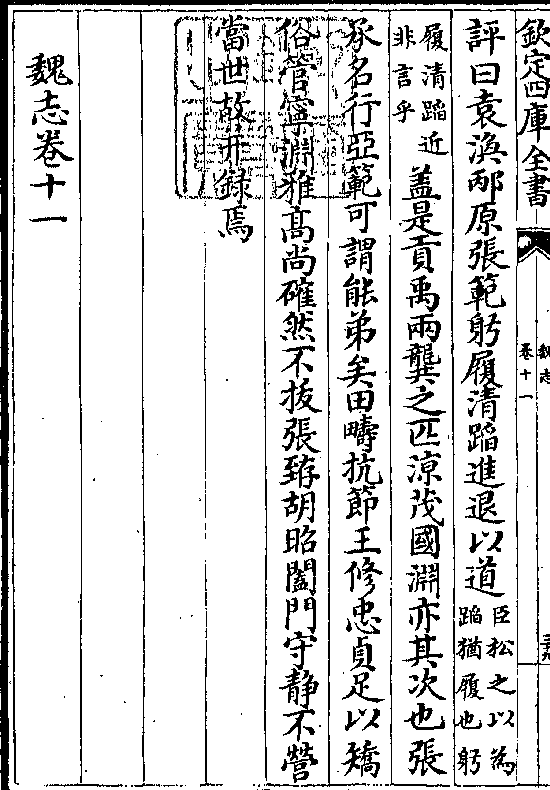 欽定四庫全書
魏志
卷十一
評曰袁渙邴原張範躬履清蹈進退以道臣松之以為蹈猶履也躬
履清蹈近非言乎蓋是貢禹兩龔之匹涼茂國淵亦其次也張
承名行亞範可謂能弟矣田疇抗節王修忠貞足以矯
俗管寧淵雅高尚確然不拔張臶胡昭闔門守静不營
當世故并録焉
魏志卷十一